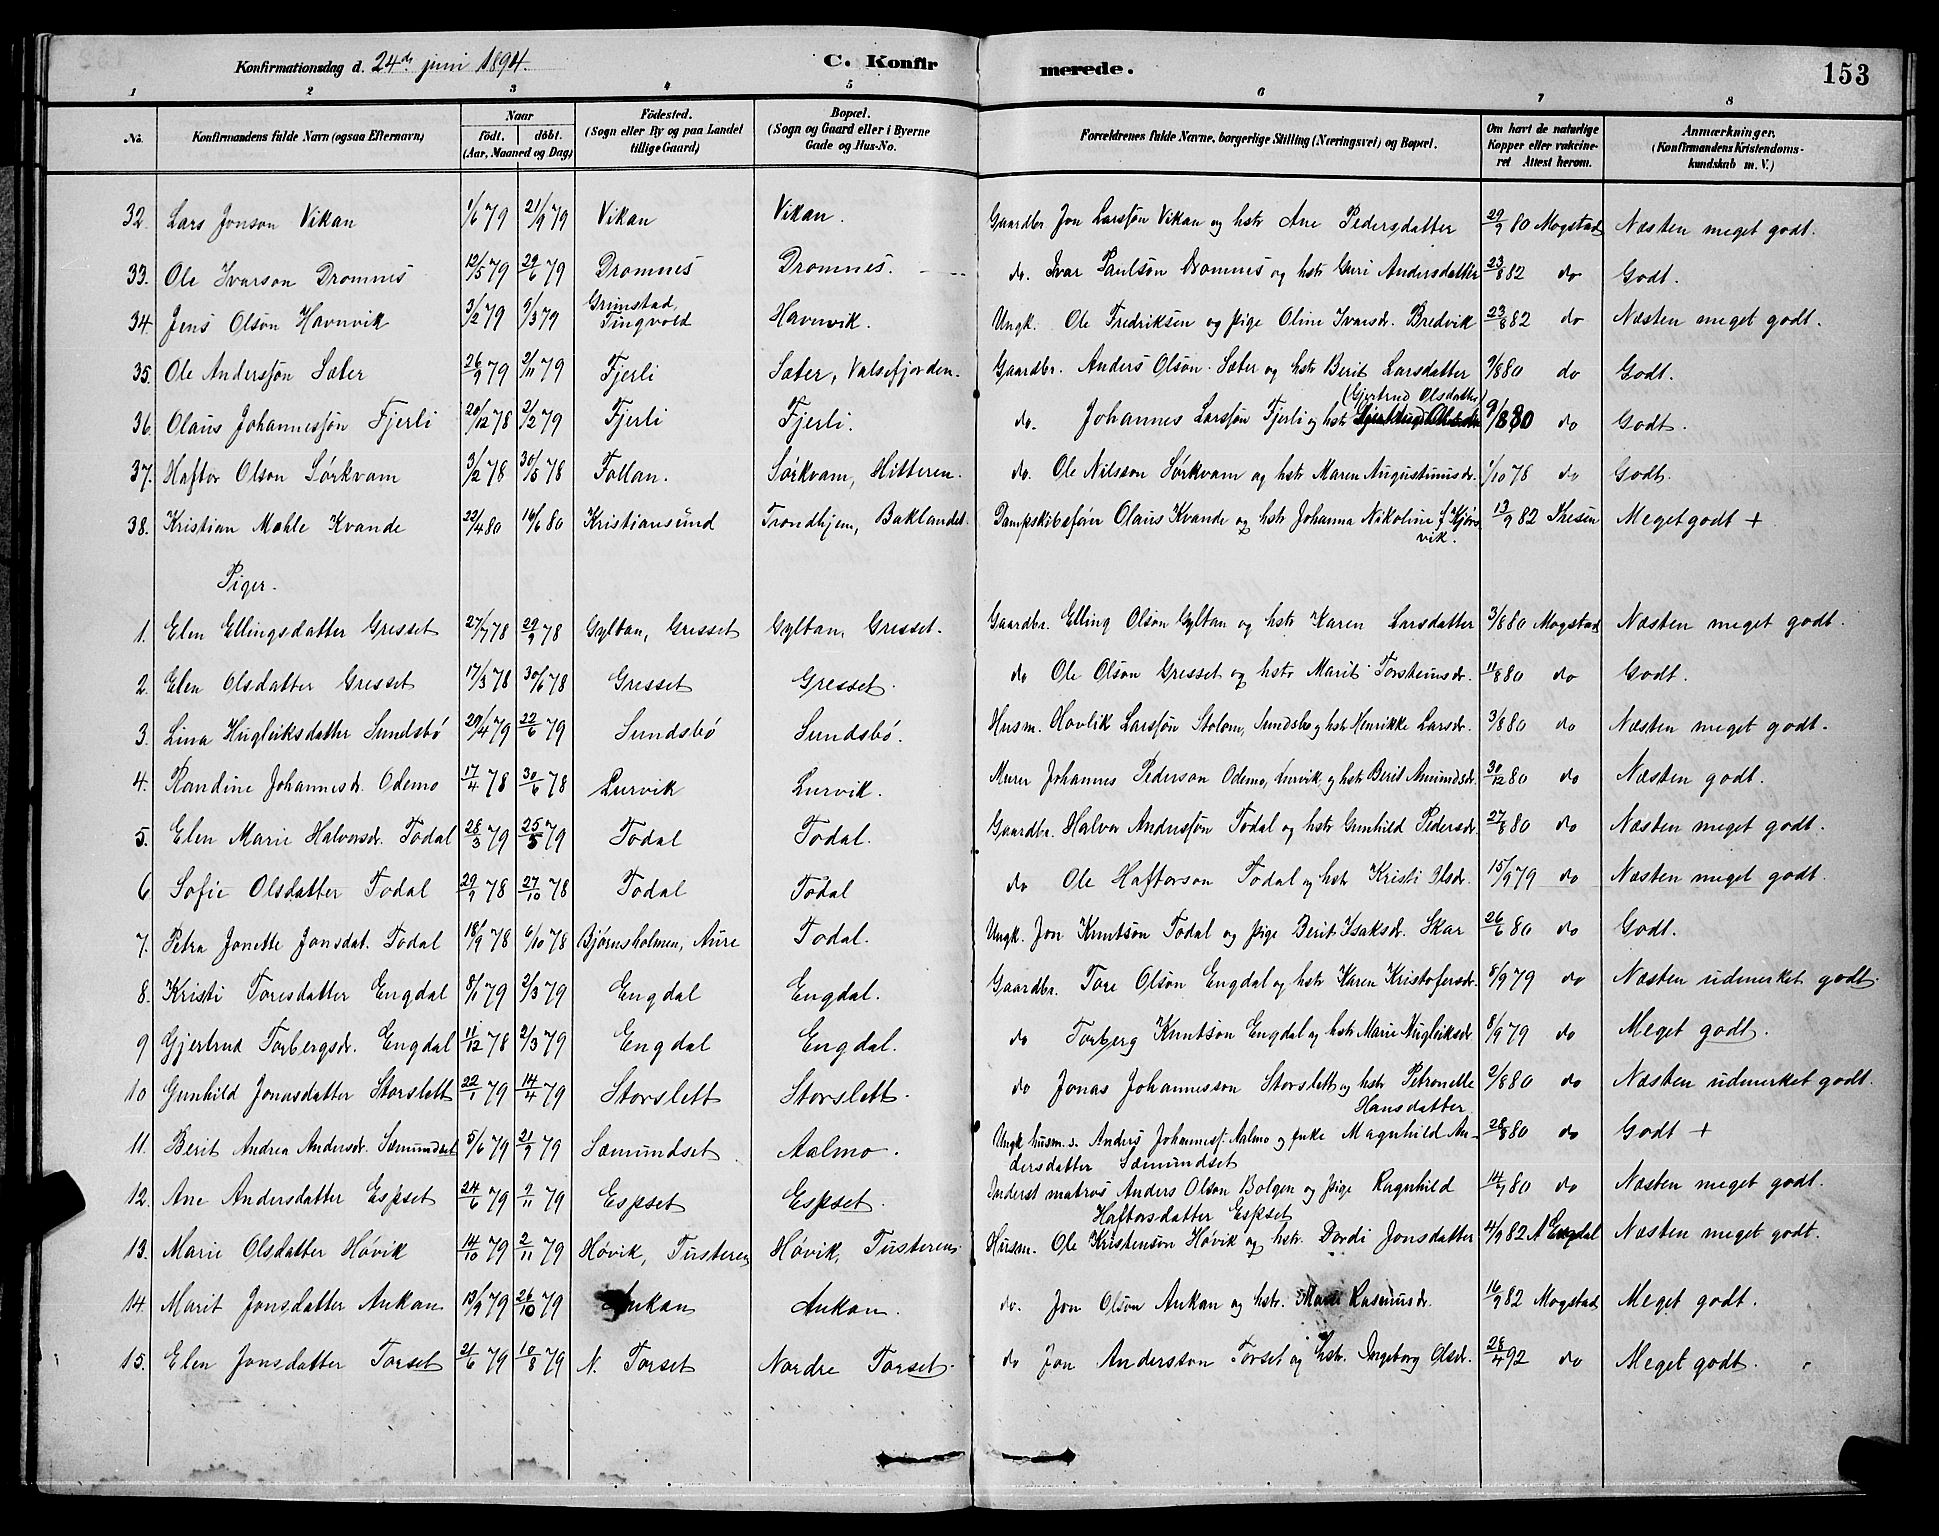 Konfirmationsdag d. 24de juni 1894. C. Konfirmerede. 153
1 2 3 4 5 6 7 8
No. Konfirmandens fulde Navn (ogsaa Efternavn) Naar födt. döbt. (Aar, Maaned og Dag) Födested. (Sogn eller By og paa Landet tillige Gaard) Bopæl. (Sogn og Gaard eller i Byerne Gade og Hus-No. Forældrenes fulde Navne, borgerlige Stilling (Næringsvei) og Bopæl. Om havt de naturlige Kopper eller vakcineret Attest herom. Anmærkninger. (Konfirmandens Kristendomskundskab m. V.)
32. Lars Jonson Vikan 1/6 79 21/9 79 Vikan Vikan. Gaardbr Jon Larsøn Vikan og hstr Ane Pedersdatter 29/9 80 Mogstad Næsten meget godt.
33. Ole Ivarson Dromnes 12/5 79 29/6 79 Dromnes Dromnes. do. Ivar Paulsøn Dromnes og hstr Guri Andersdatter 23/8 82 do Godt.
34. Jens Olsøn Havnvik 3/2 79 9/3 79 Grimstad, Tingvold Havnvik. Ungk. Ole Fredriksen og pige Oline Ivarsdr. Bredvik 23/8 82 do Næsten meget godt.
35. Ole Andersøn Sæter 26/9 79 2/11 79 Fjerli Sæter, Valsøfjorden. Gaardbr. Anders Olsøn Sæter og hstr Berit Larsdatter 9/8 80 do Godt.
36. Olaus Johannesøn Fjerli 20/12 78 2/2 79 Fjerli Fjerli. do. Johannes Larsøn Fjerli og hstr (Gjertrud Olsdatter) 9/8 80 do Godt.
37. Haftor Olson Sørkvam 3/2 78 30/5 78 Follan. Sørkvam, Hitteren. do. Ole Nilsson Sørkvam og hstr Maren Augustinusdr. 1/10 78 do Godt.
38. Kristian Mæhle Kvande 22/4 80 16/6 80 Kristiansund Trondhjem, Baklandet. Dampskibsfører Olaus Kvande og hstr Johanna Nikoline f Kjørsvik. 13/9 82 Thesen Meget godt +
Piger.
1. Elen Ellingsdatter Gresset 27/7 78 29/9 78 Gyltan, Gresset Gyltan, Gresset. Gaardbr. Elling Olsøn Gyltan og hstr Karen Larsdatter 3/8 80 Mogstad Næsten meget godt.
2. Elen Olsdatter Gresset 17/3 78 30/6 78 Gresset Gresset. do Ole Olsøn Gresset og hstr Marit Torsteinsdr. 11/8 80 do Godt.
3. Lina Hugleiksdatter Sundsbö 29/4 79 22/6 79 Sundsbö Sundsbö. Husm. Hovlik Larsøn Stolem, Sundsbø og hstr Henrikke Larsdr. 3/8 80 do Næsten meget godt.
4. Randine Johannesdr. Odemo 17/4 78 30/6 78 Lurvik Lurvik. Murer Johannes Pederson Odemo, Lurvik og hstr Berit Amundsdr. 30/12 80 do Næsten godt.
5. Elen Marie Halvorsdr. Todal 28/3 79 25/5 79 Todal Todal. Gaardbr. Halvor Andersøn Todal og hstr Gunhild Pedersdr. 27/8 80 do Næsten meget godt.
6 Sofie Olsdatter Todal 29/9 78 27/10 78 Todal Todal do Ole Haftorson Todal og hstr Kristi Olsdr. 15/9 79 do Næsten meget godt.
7. Petra Jonette Jonsdat. Todal 18/9 78 6/10 78 Bjørnsholmen, Aure Todal. Ungk. Jon Knutsøn Todal og pige Berit Isaksdr. Skar 26/6 80 do Godt.
8. Kristi Toresdatter Engdal 8/1 79 2/3 79 Engdal Engdal. Gaardbr. Tore Olsøn Engdal og hstr Karen Kristofersdr. 8/9 79 do Næsten udmerket godt.
9 Gjertrud Torbergsdr. Engdal 11/12 78 2/3 79 Engdal Engdal. do Torberg Knutsøn Engdal og hstr Marie Hugleiksdr 8/9 79 do Meget godt.
10 Gunhild Jonasdatter Storslett 22/1 79 14/4 79 Storslett Storslett. do Jonas Johannesson Storslett og hstr Petronelle Hansdatter 2/8 80 do Næsten udmerket godt.
11. Berit Andrea Andersdr. Sæmundset 5/6 79 21/9 79 Sæmundset Aalmo. Ungk husm. s. Anders Johannes. Aalmo og enke Magnhild Andersdatter Sæmundset 28/8 80 do Godt +
12. Ane Andersdatter Espset 24/6 79 9/11 79 Espset Espset. Inderst matros Anders Olson Bolgen og pige Ragnhild Haftorsdatter Espset 14/7 80 do Næsten meget godt.
13. Marie Olsdatter Høvik 14/10 79 2/11 79 Høvik, Tusteren Høvik, Tusteren. Husm. Ole Kristensøn Høvik og hstr. Dordi Jonsdatter 4/9 82 A Engdal Næsten meget godt.
14. Marit Jonsdatter Aukan 13/9 79 26/10 79 Aukan Aukan. do. Jon Olsøn Aukan og hstr. Rasmusdr. 16/9 82 Mogstad Meget godt.
15. Elen Jonsdatter Torset 21/6 79 10/8 79 N. Torset Nordre Torset. do Jon Andersson Torset og hstr. Ingeborg Olsdr. 28/4 92 do Meget godt.